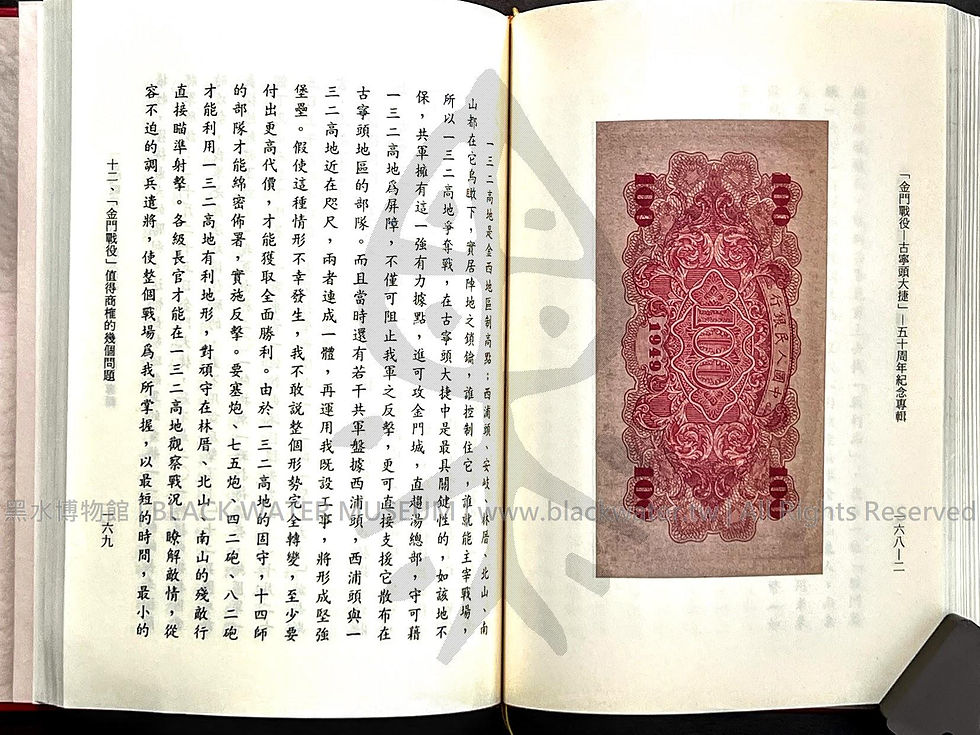 「金門戰役—古寧頭大捷」—五十周年紀念專輯
一六八—二
100
100
行銀民人國中
100
1949
100
100
一三二高地是金西地區制高點；西浦頭、安岐、林厝、北山、南
山都在它鳥瞰下，實居陣地之鎖鑰，誰控制住它，誰就能主宰戰場，
所以一三二高地爭奪戰，在古寧頭大捷中是最具關鍵性的，如該地不
保，共軍擁有這一強有力據點，進可攻金門城，直趨湯總部，守可藉
一三二高地爲屏障，不僅可阻止我軍之反擊，更可直接支援它散布在
古寧頭地區的部隊。而且當時還有若干共軍盤據西浦頭，西浦頭與一
三二高地近在咫尺，兩者連成一體，再運用我既設工事，將形成堅強
堡壘。假使這種情形不幸發生，我不敢說整個形勢完全轉變，至少要
付出更高代價，才能獲取全面勝利。由於一三二高地的固守，十四師
的部隊才能綿密佈署，實施反擊。要塞炮、七五炮、四二砲、八二砲
才能利用一三二高地有利地形，對頑守在林厝、北山、南山的殘敵行
直接瞄準射擊。各級長官才能在一三二高地觀察戰況，瞭解敵情，從
容不迫的調兵遣將，使整個戰場爲我所掌握，以最短的時間，最小的
十二、「金門戰役」值得商榷的幾個問題
一六九
黑水博物館 | BLACK WATER MUSEUM | www.black All Rights Reserved